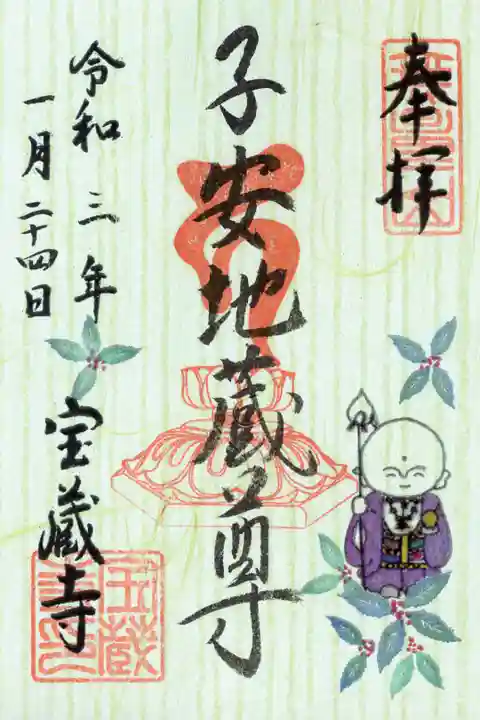 奉拝
子安地蔵尊
令和三年
一月二十四日
宝蔵寺